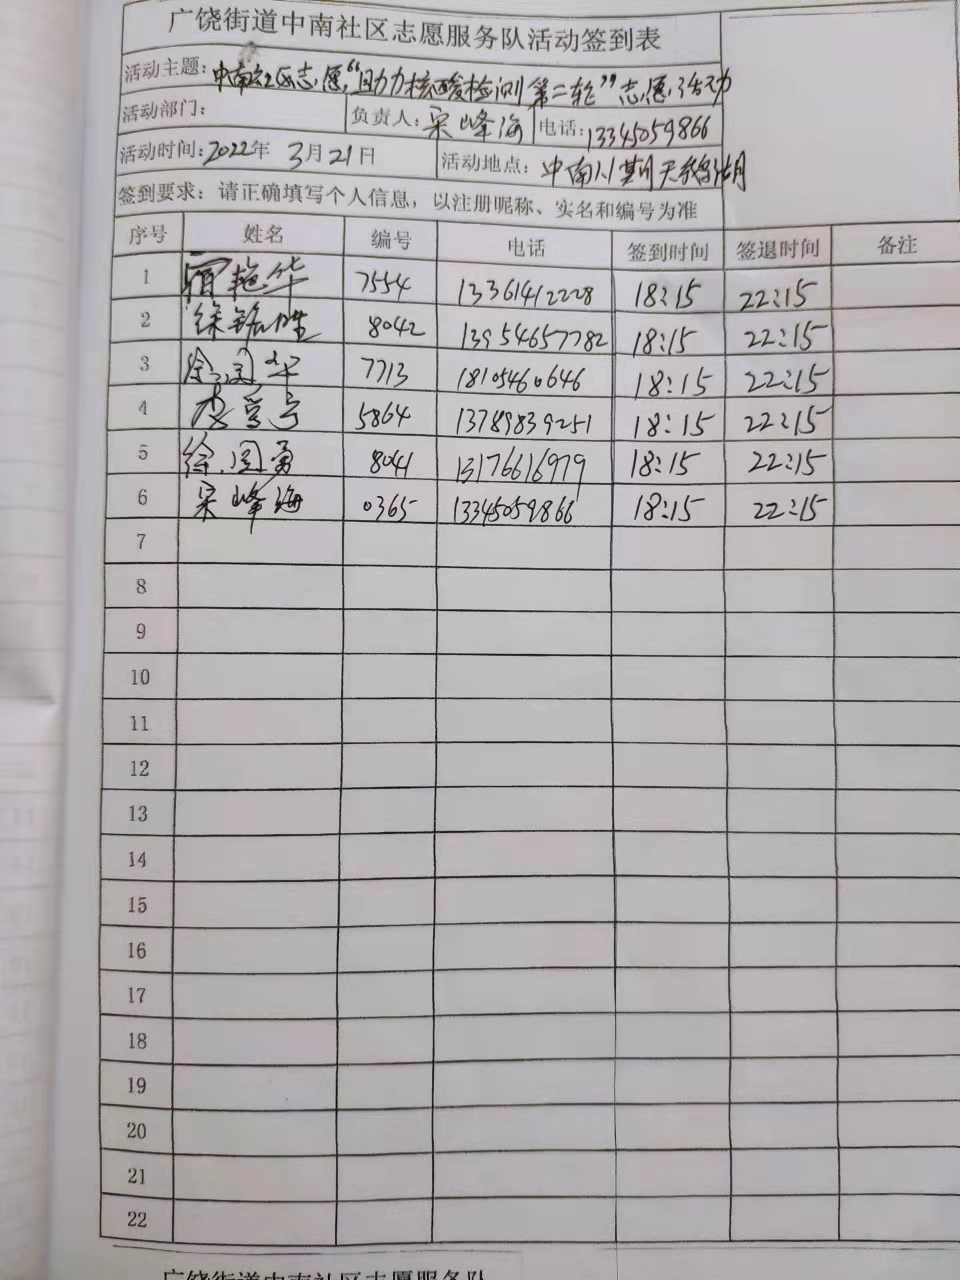 广饶街道中南社区志愿服务队活动签到表
活动主题: 中南社区志愿"助力核酸检测第二轮"志愿活动
活动部门: 负责人: 宋峰海 电话: 13345059866
活动时间: 2022年 3月21日 活动地点: 中南八期天鹅湖
签到要求: 请正确填写个人信息，以注册昵称、实名和编号为准
序号 姓名 编号 电话 签到时间 签退时间 备注
1 艳华 7554 13361412228 18:15 22:15
2 徐 8042 13954657782 18:15 22:15
3 徐国华 7713 18105460646 18:15 22:15
4 李 5864 13789839251 18:15 22:15
5 徐国勇 8041 13176616979 18:15 22:15
6 宋峰海 0365 13345059866 18:15 22:15
7
8
9
10
11
12
13
14
15
16
17
18
19
20
21
22
广饶街道中南社区志愿服务队